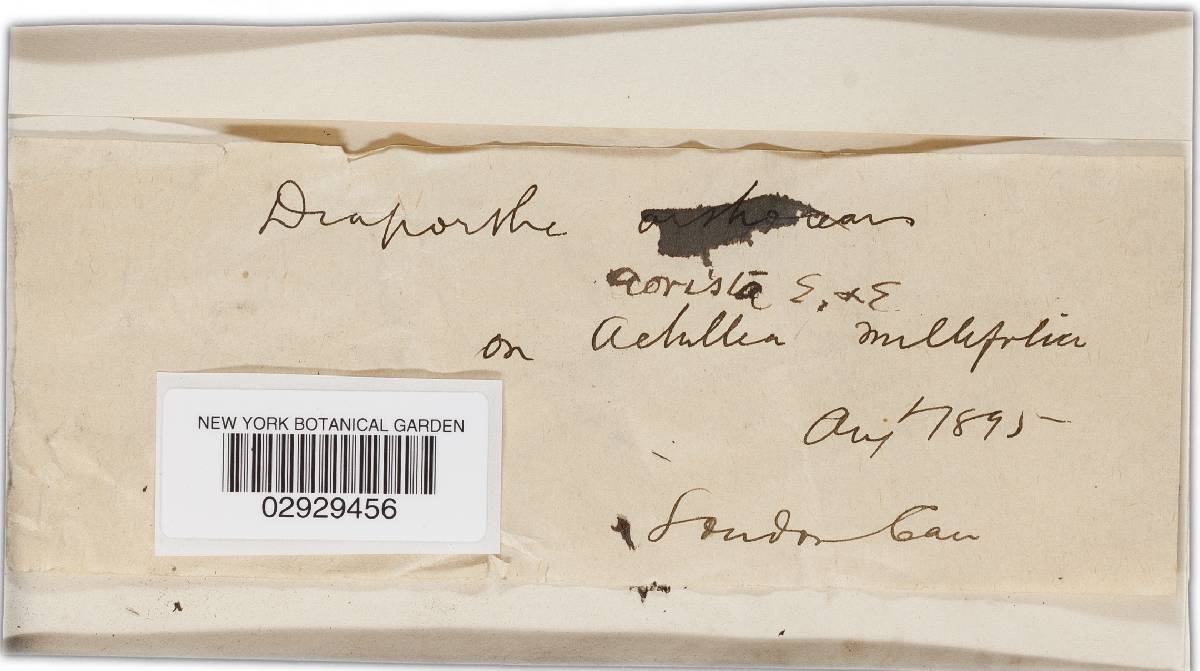 Diaporthe orthoceras
aorista E. & E
on Achillea millefolia
Augt 1895
London Can
NEW YORK BOTANICAL GARDEN
02929456